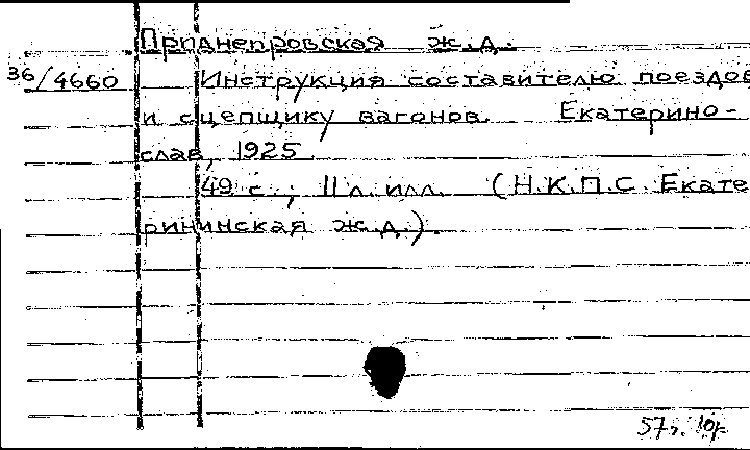 Приднепровская ж.д.
36/4660 Инструкция составителю поездов
и сцепщику вагонов. Екатерино-
слав, 1925.
49 с.; 11 л. илл. (Н.К.П.С. Екате
рининская ж.д.).
57г.